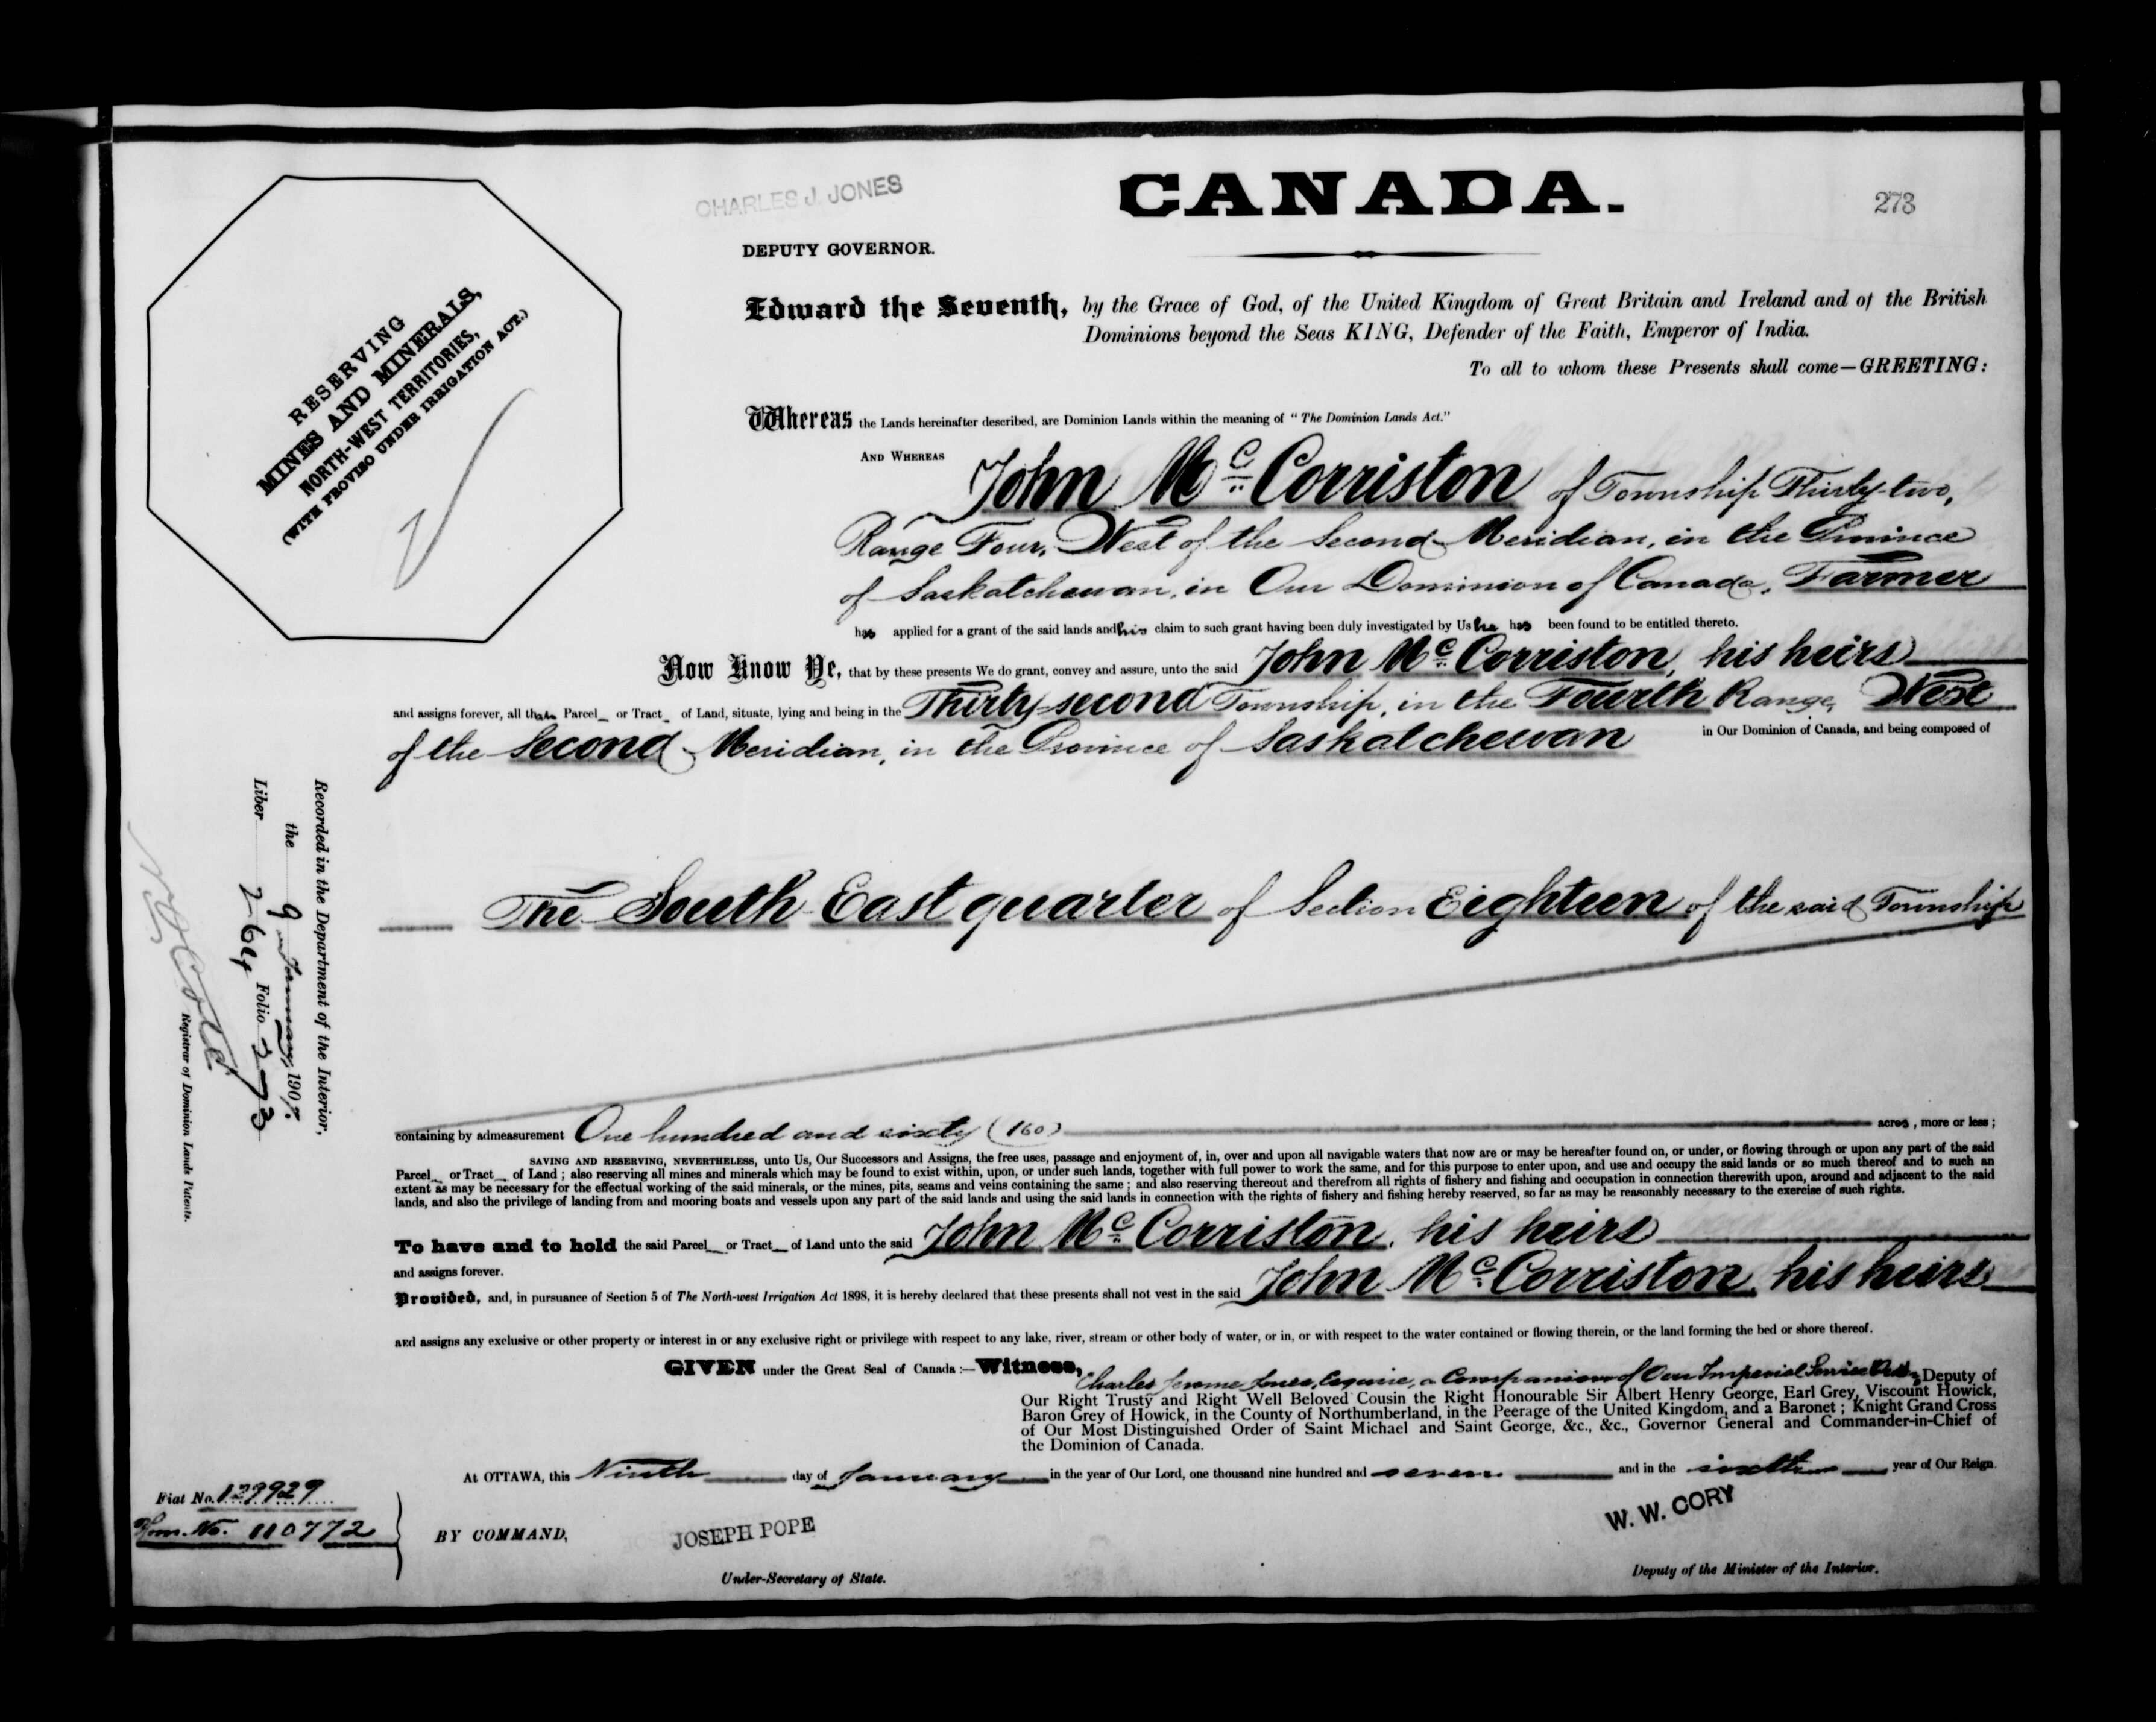 CHARLES J. JONES
CANADA.
273
DEPUTY GOVERNOR.
RESERVING
MINES AND MINERALS,
NORTH-WEST TERRITORIES,
(WITH PROVISO UNDER IRRIGATION ACT.)
Edward the Seventh, by the Grace of God, of the United Kingdom of Great Britain and Ireland and of the British
Dominions beyond the Seas KING, Defender of the Faith, Emperor of India.
To all to whom these Presents shall come—GREETING:
Whereas the Lands hereinafter described, are Dominion Lands within the meaning of "The Dominion Lands Act."
AND WHEREAS John Mc Corriston of Township Thirty-two,
Range Four, West of the Second Meridian, in the Province
of Saskatchewan, in Our Dominion of Canada, Farmer
has applied for a grant of the said lands and his claim to such grant having been duly investigated by Us he has been found to be entitled thereto.
Now Know Ye, that by these presents We do grant, convey and assure, unto the said John Mc Corriston, his heirs
and assigns forever, all that Parcel or Tract of Land, situate, lying and being in the Thirty-second Township, in the Fourth Range, West
of the Second Meridian, in the Province of Saskatchewan in Our Dominion of Canada, and being composed of
The South East quarter of Section Eighteen of the said Township
Recorded in the Department of the Interior,
the 9 January, 1907.
Liber 264 Folio 273
Registrar of Dominion Lands Patents.
containing by admeasurement One hundred and sixty (160) acres, more or less;
SAVING AND RESERVING, NEVERTHELESS, unto Us, Our Successors and Assigns, the free uses, passage and enjoyment of, in, over and upon all navigable waters that now are or may be hereafter found on, or under, or flowing through or upon any part of the said
Parcel or Tract of Land; also reserving all mines and minerals which may be found to exist within, upon, or under such lands, together with full power to work the same, and for this purpose to enter upon, and use and occupy the said lands or so much thereof and to such an
extent as may be necessary for the effectual working of the said minerals, or the mines, pits, seams and veins containing the same; and also reserving thereout and therefrom all rights of fishery and fishing and occupation in connection therewith upon, around and adjacent to the said
lands, and also the privilege of landing from and mooring boats and vessels upon any part of the said lands and using the said lands in connection with the rights of fishery and fishing hereby reserved, so far as may be reasonably necessary to the exercise of such rights.
To have and to hold the said Parcel or Tract of Land unto the said John Mc Corriston, his heirs
and assigns forever.
Provided, and, in pursuance of Section 5 of The North-west Irrigation Act 1898, it is hereby declared that these presents shall not vest in the said John Mc Corriston, his heirs
and assigns any exclusive or other property or interest in or any exclusive right or privilege with respect to any lake, river, stream or other body of water, or in, or with respect to the water contained or flowing therein, or the land forming the bed or shore thereof.
GIVEN under the Great Seal of Canada:—Witness, Charles Jerome Jones, Esquire, a Companion of Our Imperial Service Order, Deputy of
Our Right Trusty and Right Well Beloved Cousin the Right Honourable Sir Albert Henry George, Earl Grey, Viscount Howick,
Baron Grey of Howick, in the County of Northumberland, in the Peerage of the United Kingdom, and a Baronet; Knight Grand Cross
of Our Most Distinguished Order of Saint Michael and Saint George, &c., &c., Governor General and Commander-in-Chief of
the Dominion of Canada.
At OTTAWA, this Ninth day of January in the year of Our Lord, one thousand nine hundred and seven and in the sixth year of Our Reign.
Fiat No. 129929
Hom. No. 110772
BY COMMAND,
JOSEPH POPE
Under-Secretary of State.
W. W. CORY
Deputy of the Minister of the Interior.